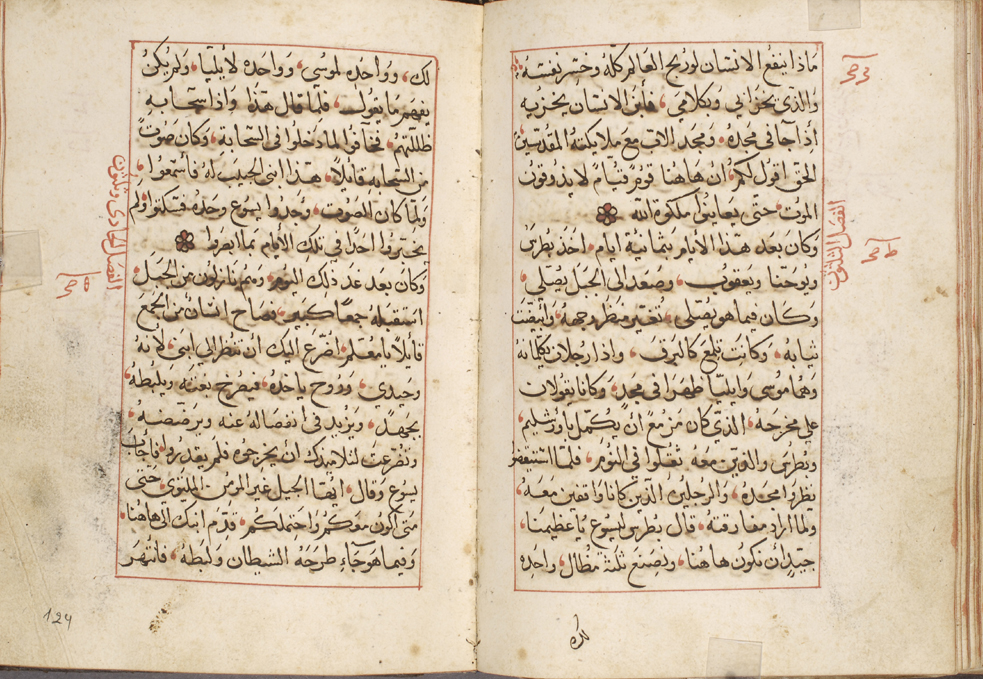 ماذا ينفع الانسان لو ربح العالم كله وخسر نفسه
والذي يخزا بي وبكلامي فابن الانسان يخزيه
اذا جا في مجده ومجد الاب مع ملايكته المقدسين
الحق اقول لكم ان هاهنا قوم قيام لا يذوقون
الموت حتى يعاينوا ملكوة الله
وكان بعد هذا الايام بثمانية ايام اخذ بطرس
ويوحنا ويعقوب وصعد الى الجبل يصلي
وكان فيما هو يصلي تغير منظر وجهه وابيضت
ثيابه وكانت تلمع كالبرق واذا رجلان يكلمانه
وهما موسى وايليا ظهرا في مجد وكانا يقولان
على مخرجه الذي كان مزمعًا ان يكمل باورشليم
وبطرس والذين معه ثقلوا في النوم فلما استيقظوا
نظروا مجده والرجلين الذين كانا واقفين معه
ولما ارادا مفارقته قال بطرس ليسوع يا عظيمنا
جيد ان نكون هاهنا ونصنع ثلثة مظال واحده
لك
الفصل الثلثون
لك وواحده لموسى وواحده لايليا ولم يكن
يفهم ما يقول فلما قال هذا واذا سحابه
ظللتهم فخافوا لما دخلوا في السحابة وكان صوت
من السحابه قايلاً هذا ابني الحبيب له فاسمعوا
ولما كان الصوت وجدوا يسوع وحده فسكتوا ولم
يخبروا احدًا في تلك الأيام بما ابصروا
وكان بعد غد ذلك اليوم وهم نازلون من الجبل
استقبله جمعًا كثير فصاح انسان من الجمع
قايلاً يا معلم اضرع اليك ان تنظر الي ابني لانه
وحيدي وروح ياخذه فيصرخ بغته ويلبطه
بجهد ويزبد في انفصاله عنه ويرضضه
وتضرعت لتلاميذك أن يخرجوه فلم يقدروا فاجاب
يسوع وقال ايها الجيل غير المومن الملتوي حتى
متى أكون معكم واحتملكم قدم ابنك الي هاهنا
وفيما هو جاء طرحه الشيطان ولبطه فانتهر
الفصل الحادي وثلثون
124